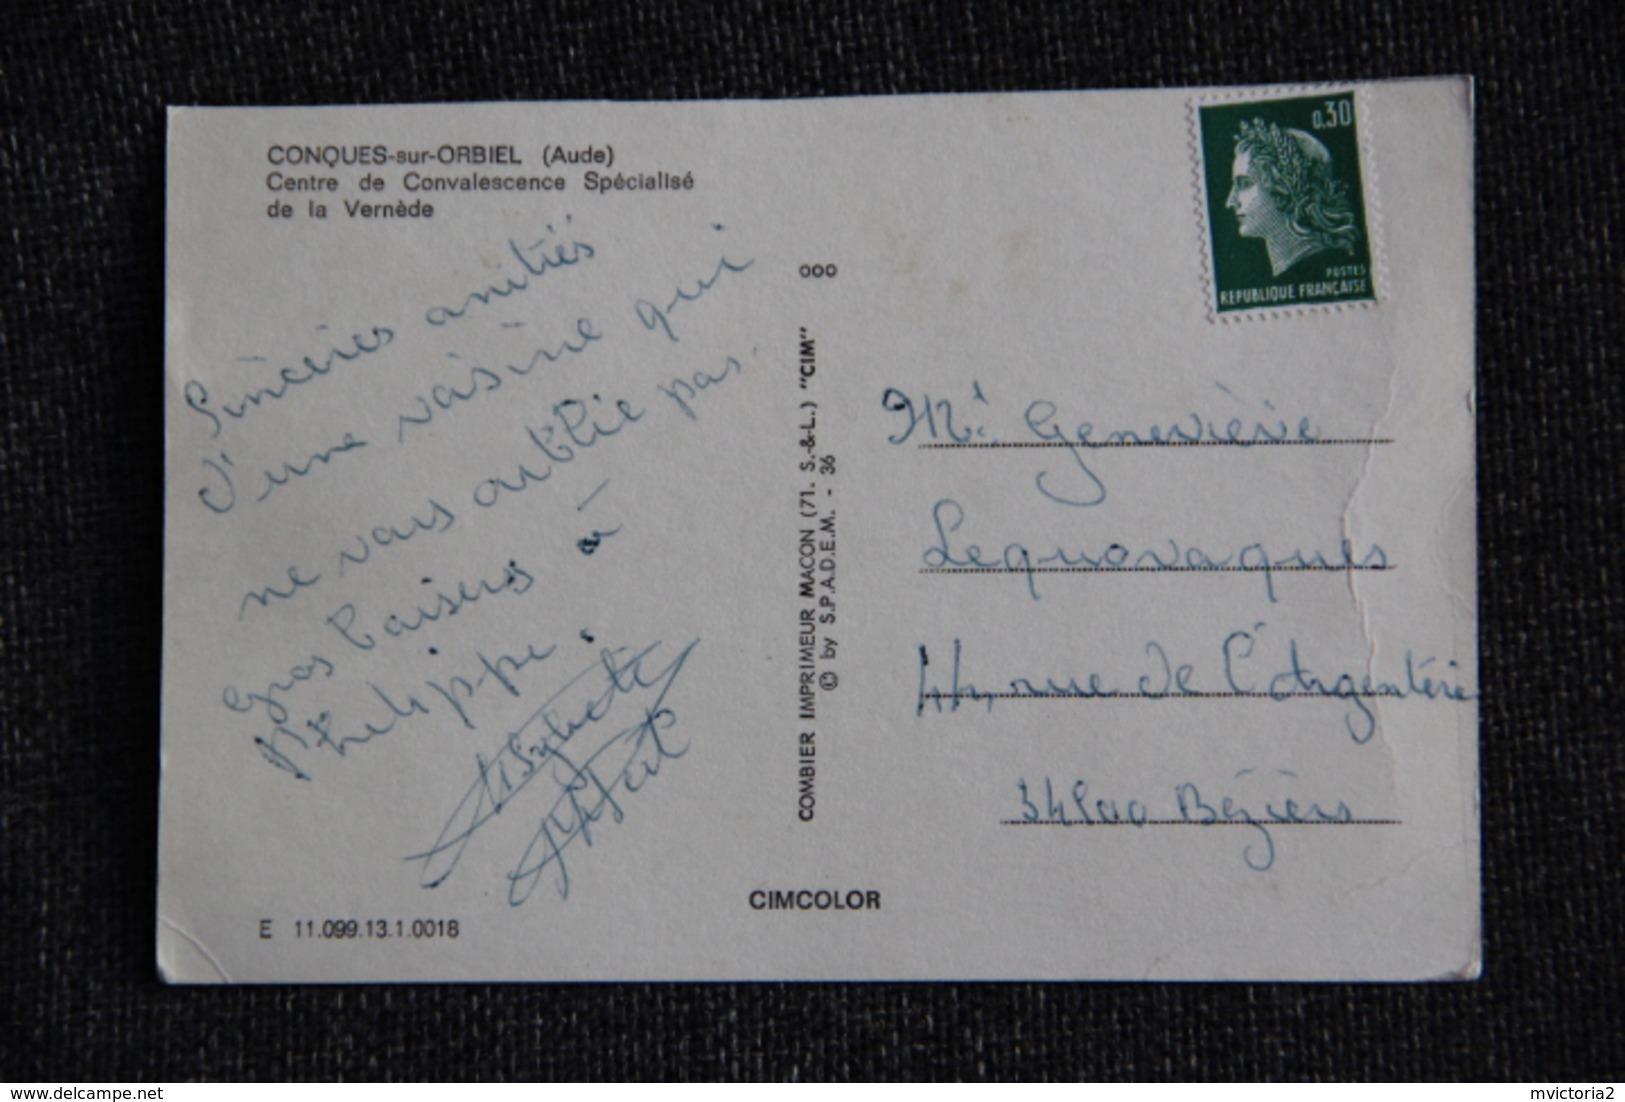 CONQUES-sur-ORBIEL (Aude)
Centre de Convalescence Spécialisé
de la Vernède
Sincères amitiés
d'une voisine qui
ne vous oublie pas.
Gros baisers à
Philippe.
E 11.099.13.1.0018
000
COMBIER IMPRIMEUR MACON (71. S.-&-L.) "CIM"
© by S.P.A.D.E.M. - 36
CIMCOLOR
0,30
POSTES
REPUBLIQUE FRANÇAISE
Geneviève
Lequovaques
44, rue de l'Argentérie
34500 Béziers
delcampe.net
mvictoria2